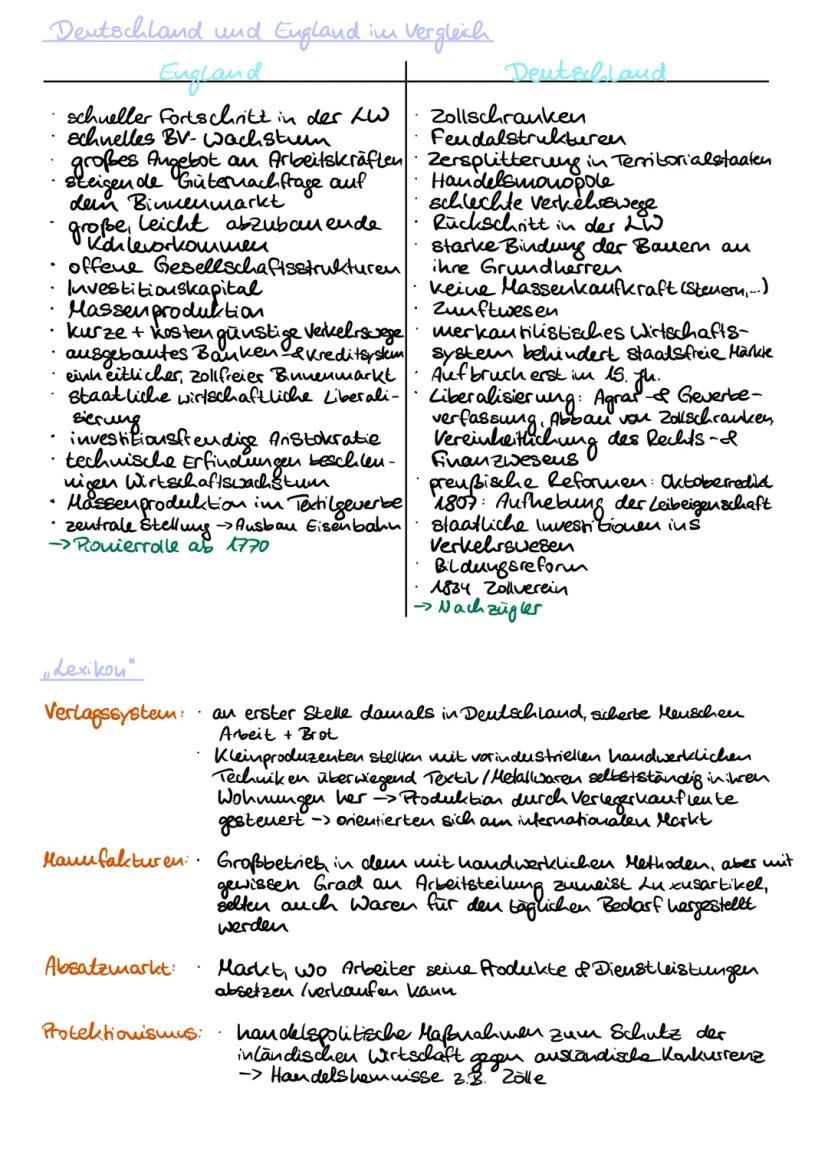 Deutschland und England im Vergleich
England
· schneller Fortschritt in der LW
· schnelles BV-Wachstum
· großes Angebot an Arbeitskräften
· steigende Güternachfrage auf
dem Binnenmarkt
· große, leicht abzubauende
Kohlevorkommen
· offene Gesellschaftsstrukturen
· Investitionskapital
· Massenproduktion
· kurze + kostengünstige Verkehrswege
· ausgebautes Banken- & Kreditsystem
· einheitlicher, zollfreier Binnenmarkt
· staatliche wirtschaftliche Liberali-
sierung
· investitionsfreudige Aristokratie
· technische Erfindungen beschleu-
nigen Wirtschaftswachstum
· Massenproduktion im Textilgewerbe
· zentrale Stellung → Ausbau Eisenbahn
→ Pionierrolle ab 1770
Deutschland
· Zollschranken
· Feudalstrukturen
· Zersplitterung in Territorialstaaten
· Handelsmonopole
· schlechte Verkehrswege
· Rückschritt in der LW
· starke Bindung der Bauern an
ihre Grundherren
· keine Massenkaufkraft (Steuern,...)
· Zunftwesen
· merkantilistisches Wirtschafts-
system behindert staatsfreie Märkte
· Aufbruch erst im 19. Jh.
· Liberalisierung: Agrar- & Gewerbe-
verfassung, Abbau von Zollschranken,
Vereinheitlichung des Rechts- &
Finanzwesens
· preußische Reformen: Oktoberedikt
1807: Aufhebung der Leibeigenschaft
· staatliche Investitionen ins
Verkehrswesen
· Bildungsreform
· 1834 Zollverein
→ Nachzügler
„Lexikon"
Verlagssystem: · an erster Stelle damals in Deutschland, sicherte Menschen
Arbeit + Brot
· Kleinproduzenten stellen mit vorindustriellen handwerklichen
Techniken überwiegend Textil / Metallwaren selbstständig in ihren
Wohnungen her → Produktion durch Verlegerkaufleute
gesteuert → orientierten sich am internationalen Markt
Manufakturen: · Großbetrieb, in dem mit handwerklichen Methoden, aber mit
gewissen Grad an Arbeitsteilung zumeist Luxusartikel,
selten auch Waren für den täglichen Bedarf hergestellt
werden
Absatzmarkt: · Markt, wo Arbeiter seine Produkte & Dienstleistungen
absetzen / verkaufen kann
Protektionismus: · handelspolitische Maßnahmen zum Schutz der
inländischen Wirtschaft gegen ausländische Konkurrenz
→ Handelshemnisse z.B. Zölle